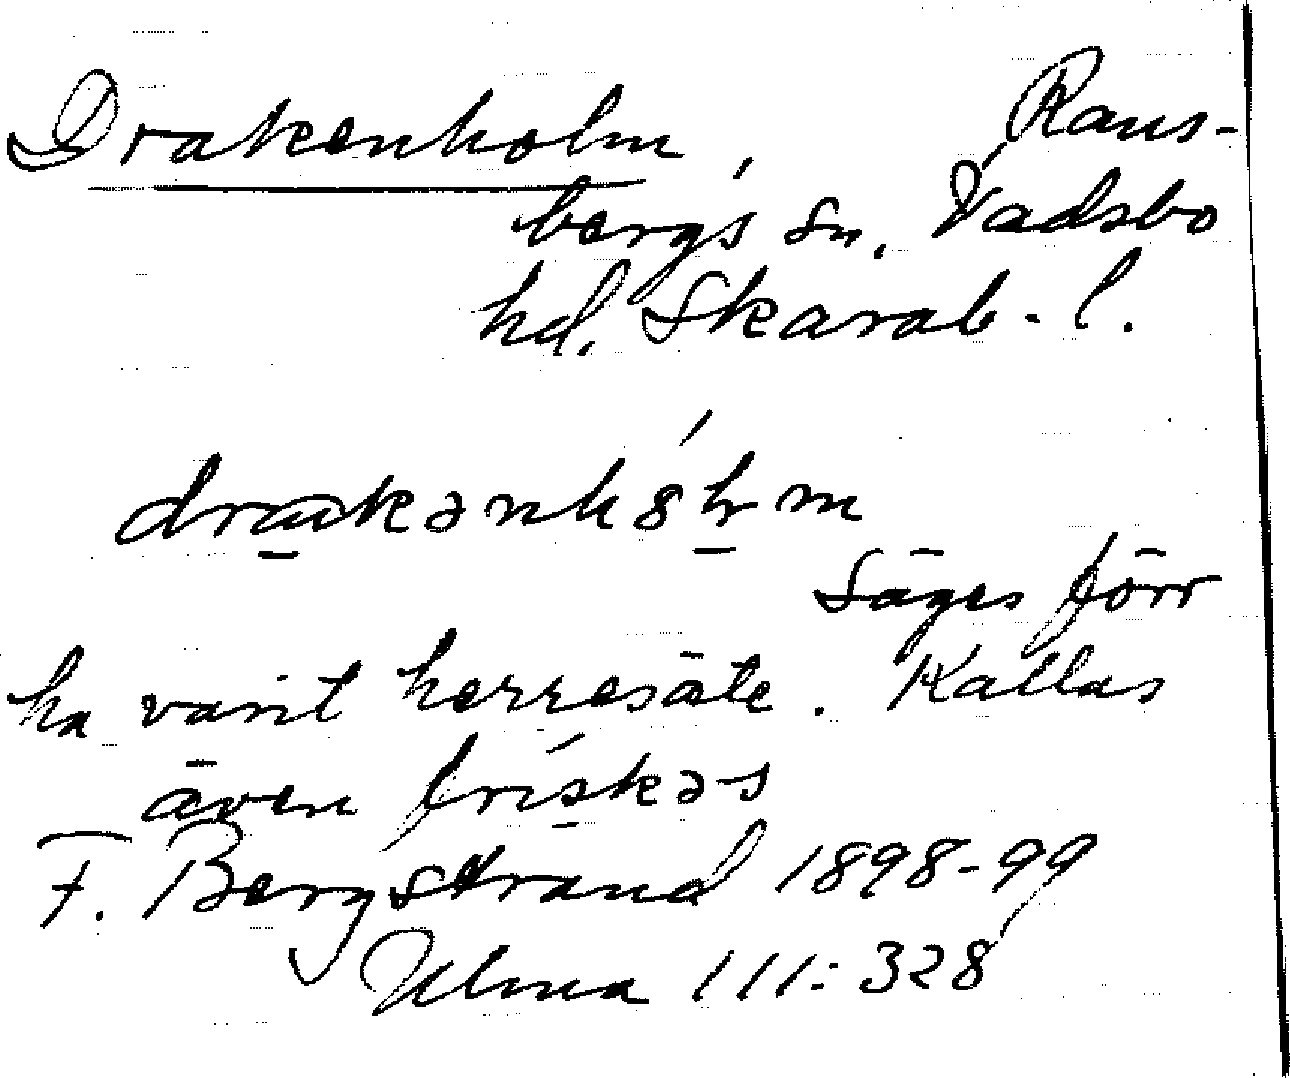 Drakenholm, Rans-
bergs sn. Vadsbo
hd. Skarab. l.
Säges förr
ha varit herresäte. Kallas
även friskəs
F. Bergstrand 1898-99
Ulma 111:328